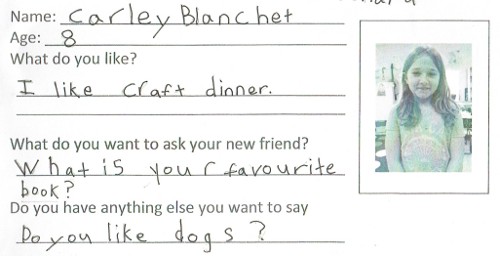 Name: Carley Blanchet
Age: 8
What do you like?
I like craft dinner.
What do you want to ask your new friend?
What is your favourite
book?
Do you have anything else you want to say
Do you like dogs?